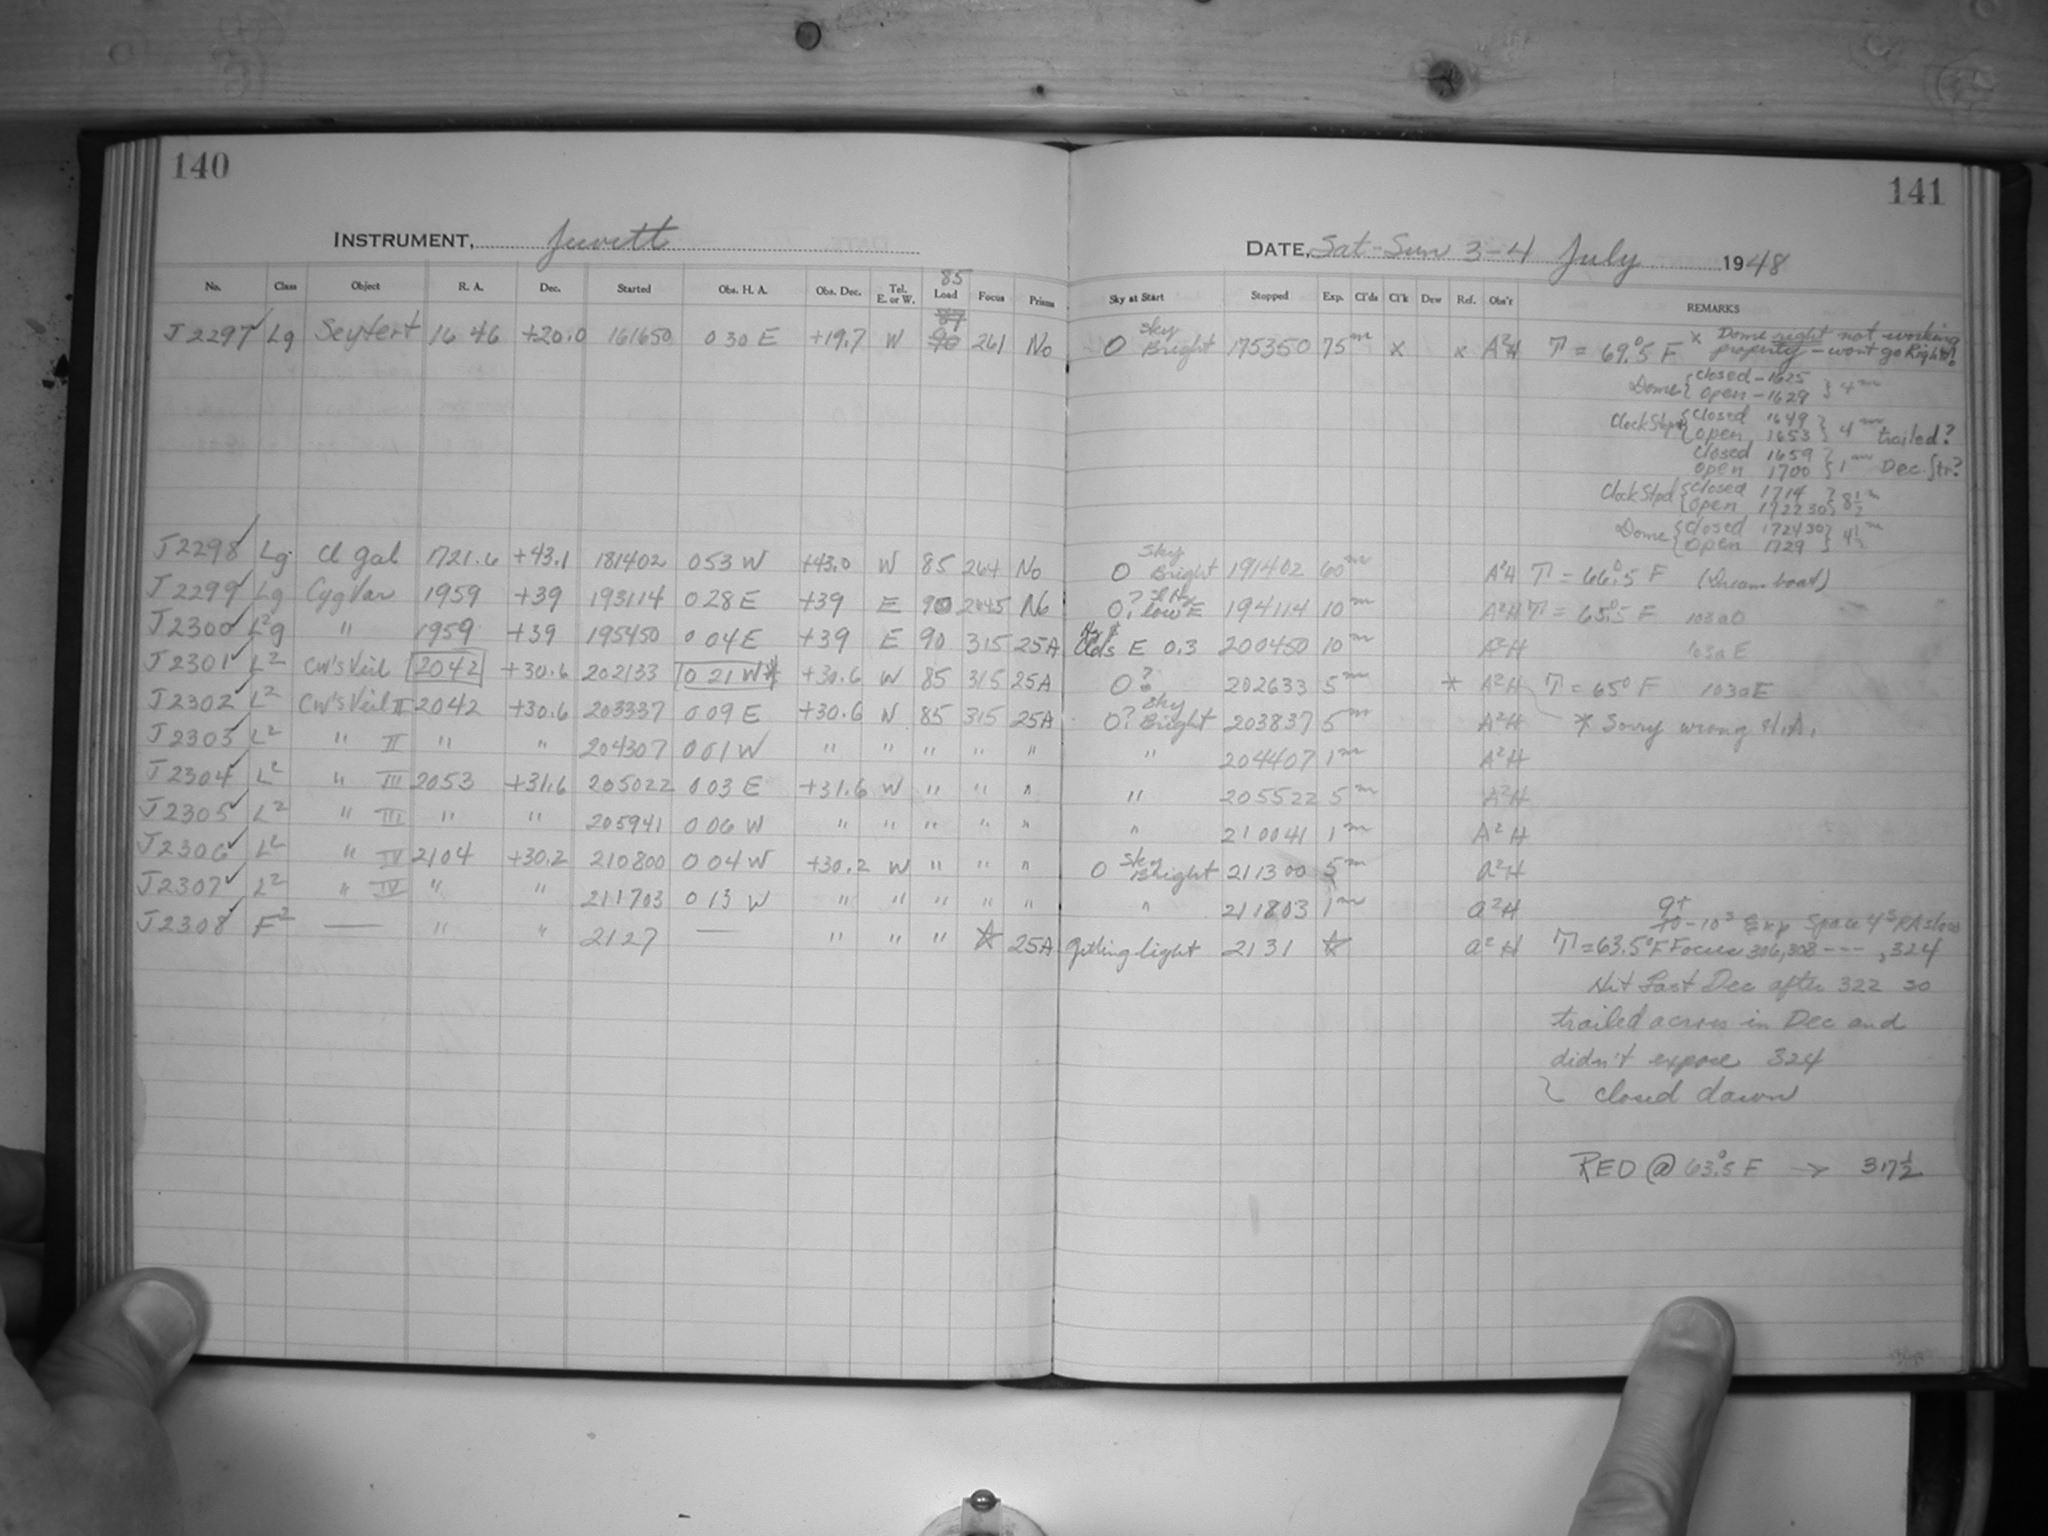 140
141
INSTRUMENT, Jewett
DATE, Sat-Sun 3-4 July 1948
No. Class Object R. A. Dec. Started Obs. H. A. Obs. Dec. Tel. E. or W. 85 Load Focus Prisms
Sky at Start Stopped Exp. Cl'ds Cl'k Dew Ref. Obs'r REMARKS
J2297 ✓ Lg Seyfert 16 46 +20.0 161650 0 30 E +19.7 W 87 90 261 No
O Sky Bright 175350 75m x x A2H T = 69.°5 F x Dome right not working
properly - wont go Right!
Dome { closed - 1625
open - 1629 } 4m
Clock Stpd { closed 1649
open 1653 } 4m trailed?
closed 1659
open 1700 } 1m Dec. tr?
Clock Stpd { closed 1714
open 172230 } 8½m
Dome { closed 172430
open 1729 } 4½m
J2298 ✓ Lg Cl gal 1721.6 +43.1 181402 053 W +43.0 W 85 264 No
O Sky Bright 191402 60m A2H T = 66.°5 F (Dreamboat)
J2299 ✓ Lg Cyg Var 1959 +39 193114 028 E +39 E 90 No
O? low E 194114 10m A2H T = 65.°5 F 103aO
J2300 ✓ L2g " 1959 +39 195450 0 04 E +39 E 90 315 25A
Clds E 0.3 200450 10m A2H 103a E
J2301 ✓ L2 CW's Veil 2042 +30.6 202133 0 21 W* +30.6 W 85 315 25A
O? 202633 5m * A2H T = 65° F 103aE
J2302 ✓ L2 CW's Veil II 2042 +30.6 203337 0 09 E +30.6 W 85 315 25A
O? Sky Bright 203837 5m A2H * Sorry wrong H.A.
J2303 ✓ L2 " II " " 204307 0 01 W " " " " "
" 204407 1m A2H
J2304 ✓ L2 " III 2053 +31.6 205022 0 03 E +31.6 W " " "
" 205522 5m A2H
J2305 ✓ L2 " III " " 205941 0 06 W " " " " "
" 210041 1m A2H
J2306 ✓ L2 " IV 2104 +30.2 210800 0 04 W +30.2 W " " "
O Sky Bright 211300 5m A2H
J2307 ✓ L2 " IV " " 211703 0 13 W " " " " "
" 211803 1m A2H
J2308 ✓ F2 — " " 2127 — " " " ☆ 25A
Getting light 2131 ☆ A2H 9+
10-10s Exp Space 4s RA slow
T = 63.5°F Focus 306,308 --- ,324
Hit Fast Dec after 322 so
trailed across in Dec and
didn't expose 324
closed dawn
RED @ 63.°5 F → 317½